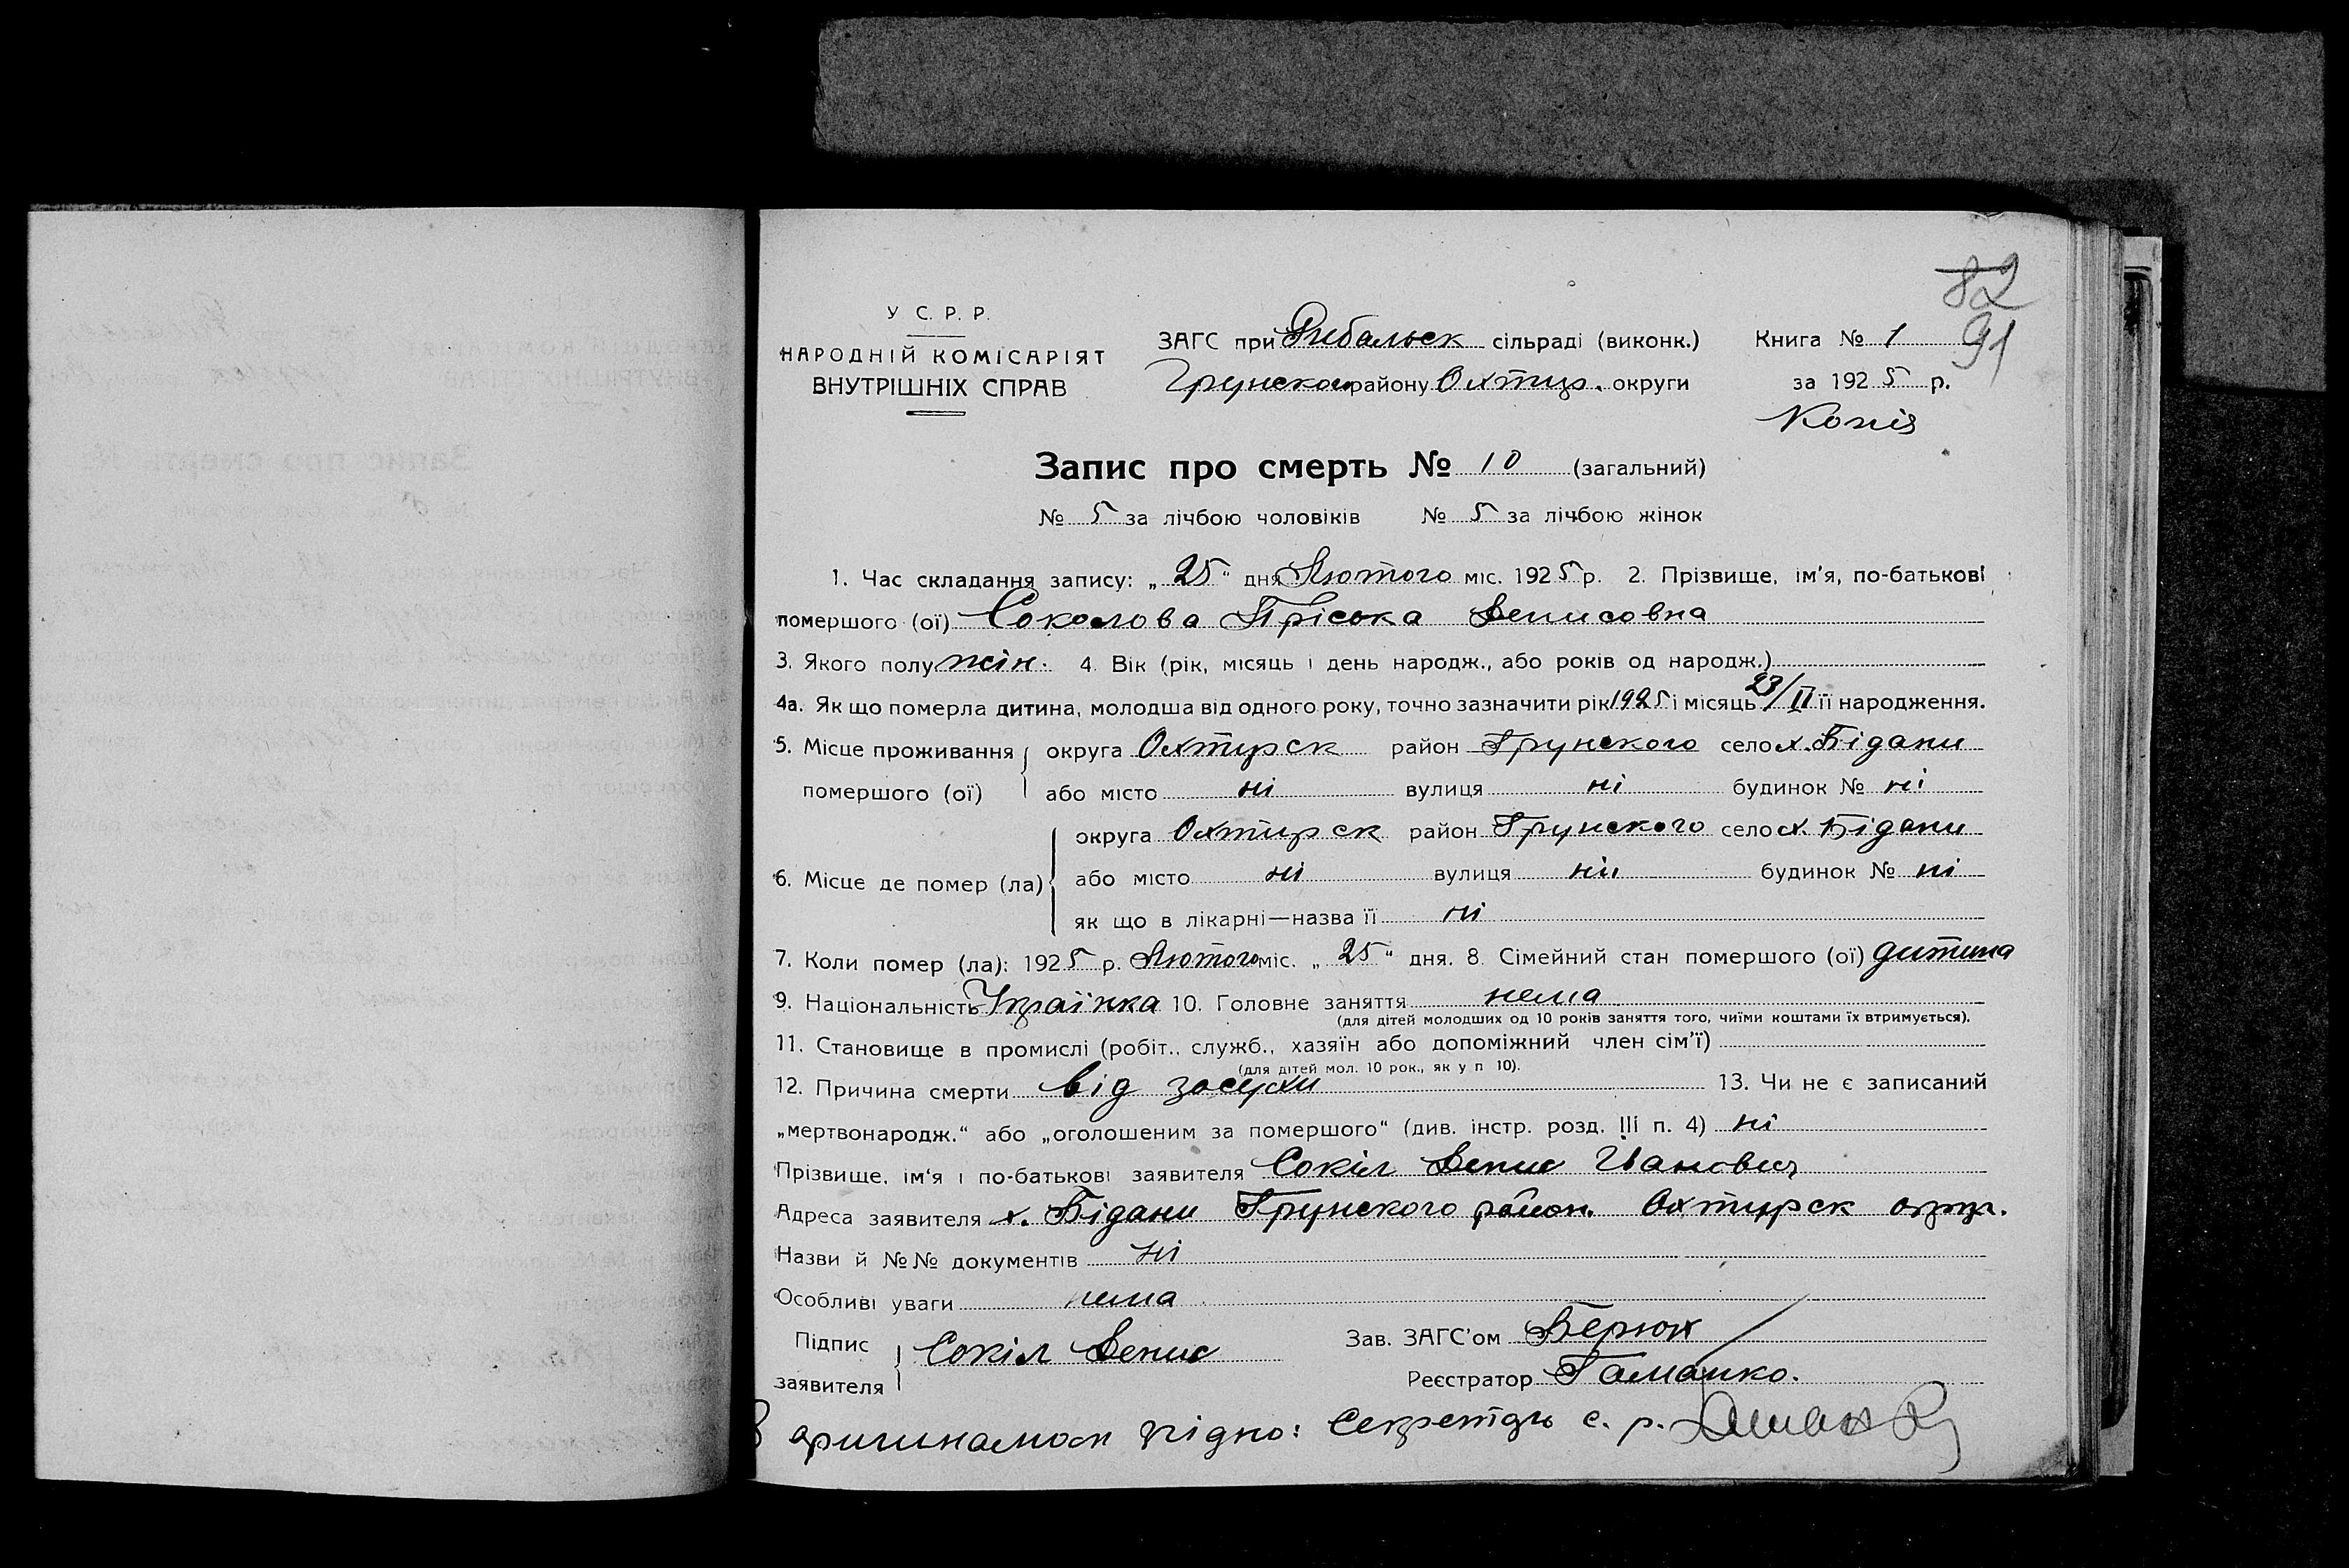 82
91
У С. Р. Р.
НАРОДНІЙ КОМІСАРІЯТ
ВНУТРІШНІХ СПРАВ
ЗАГС при Рибальск сільраді (виконк.)
Грунского району Охтир. округи
Книга № 1
за 1925 р.
Копія
Запис про смерть № 10 (загальний)
№ 5 за лічбою чоловіків № 5 за лічбою жінок
1. Час складання запису: „25" дня Лютого міс. 1925 р. 2. Прізвище, ім'я, по-батькові
помершого (ої) Соколова Пріська Денисовна
3. Якого полу жін. 4. Вік (рік, місяць і день народж., або років од народж.)
4а. Як що померла дитина, молодша від одного року, точно зазначити рік 1925 і місяць 23/II її народження.
5. Місце проживання округа Охтирск район Грунского село х. Бідани
помершого (ої) або місто ні вулиця ні будинок № ні
округа Охтирск район Грунского село х. Бідани
6. Місце де помер (ла) або місто ні вулиця ні будинок № ні
як що в лікарні—назва її ні
7. Коли помер (ла): 1925 р. Лютого міс. „25" дня. 8. Сімейний стан помершого (ої) дитина
9. Національність Українка 10. Головне заняття нема
(для дітей молодших од 10 років заняття того, чиїми коштами їх втримується).
11. Становище в промислі (робіт., служб., хазяїн або допоміжний член сім'ї)
(для дітей мол. 10 рок., як у п 10).
12. Причина смерти від засухи 13. Чи не є записаний
„мертвонародж." або „оголошеним за помершого" (див. інстр. розд. III п. 4) ні
Прізвище, ім'я і по-батькові заявителя Сокіл Денис Іванович
Адреса заявителя х. Бідани Грунского район. Охтирск окр.
Назви й №№ документів ні
Особливі уваги нема
Підпис заявителя Сокіл Денис
Зав. ЗАГС'ом Берюх
Реєстратор Гаманко.
З оригиналом згідно: Секретарь с. р.